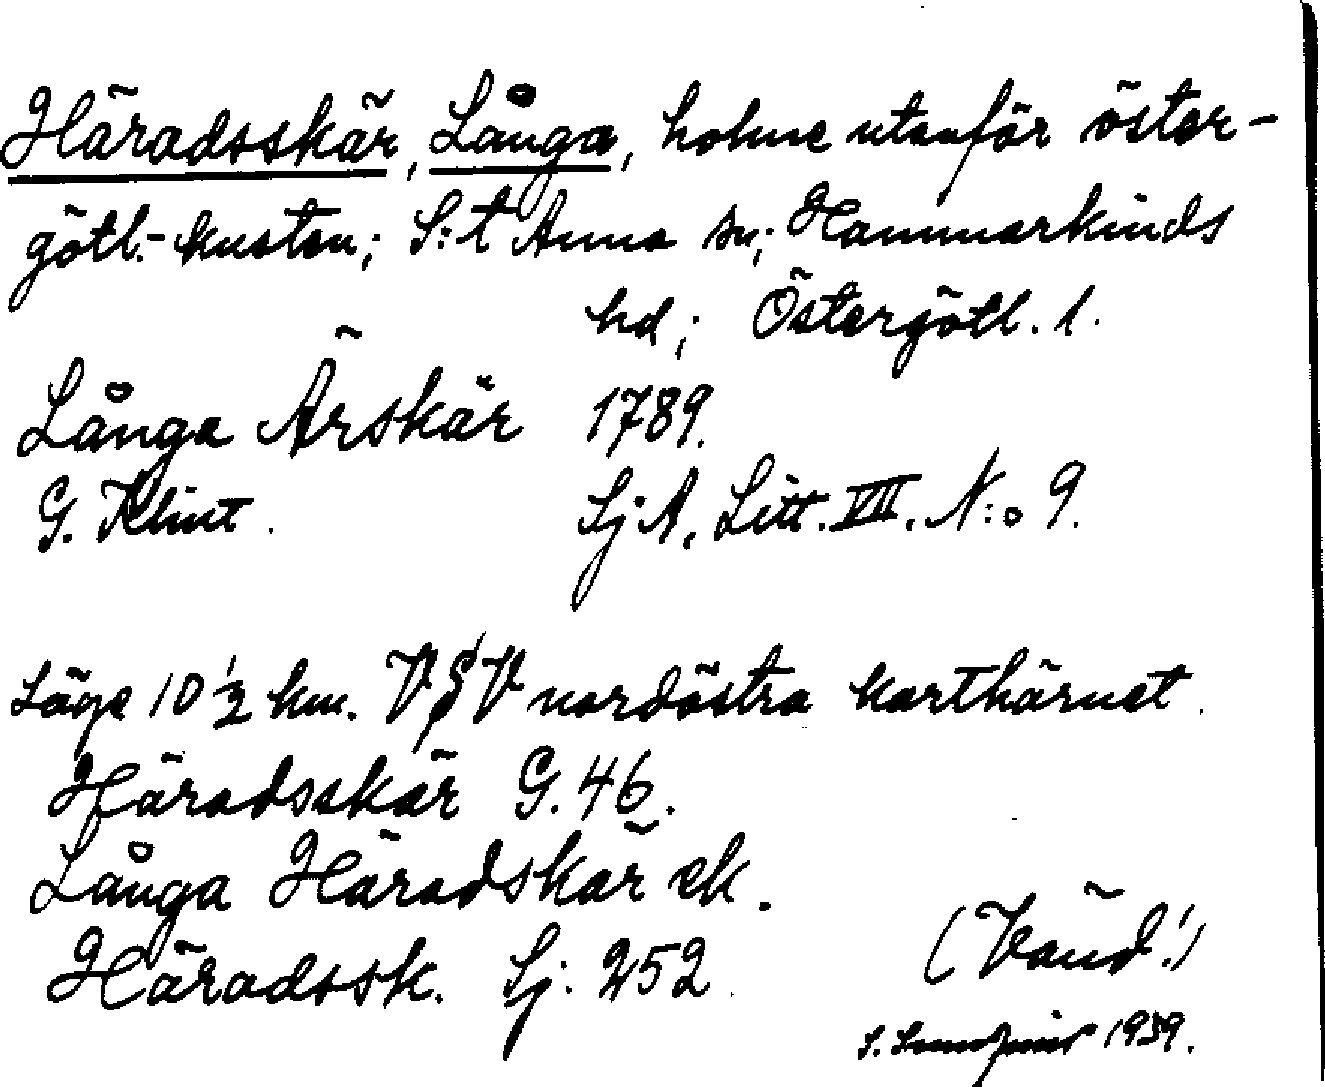 Häradsskär, Långa, holme utanför öster-
götl.-kusten; S:t Anna sn; Hammarkinds
hd; Östergötl. l.
Långa Ärskär 1789.
G. Klint. SjA, Litt. VII. N:o 9.
Läge 10 1/2 km. VSV nordöstra karthörnet.
Häradsskär G. 46.
Långa Häradskär ek.
Häradssk. Sj. 252.
(Vänd!)
S. 1939.